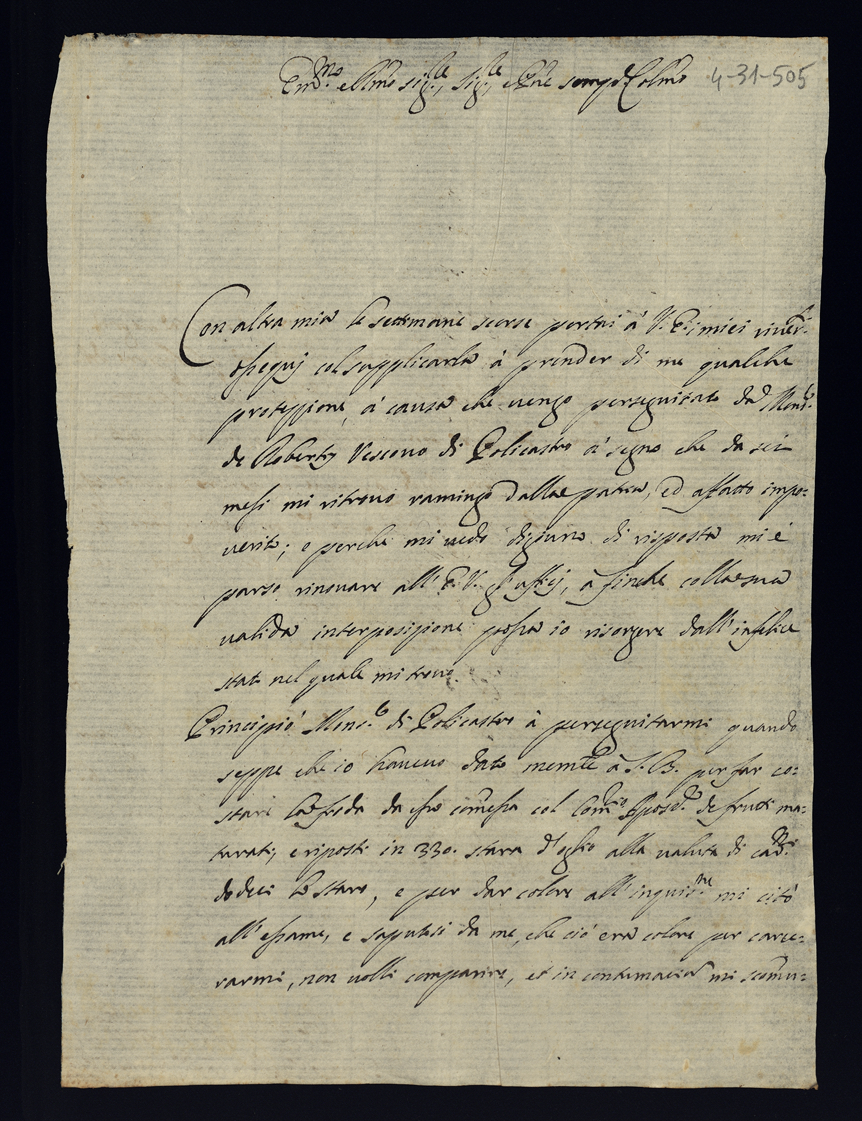 Em.mo e Ill.mo Sig.re, Sig.re, e P.ne semp. Col.mo 4-31-505
Con altra mia le settimane scorse portai à V. E. i miei river.ti
ossequij col supplicarla à prender di me qualche
protezzione, à causa che vengo perseguitato da Mons.r
de Robertis Vescovo di Policastro à segno che da sei
mesi mi ritrovo ramingo dalla patria, ed affatto impo=
verito; e perche mi vedo digiuno di risposta mi è
parso rinovare all' E. V. gl'uffij, à finche colla sua
valida interposizione possa io risorgere dall'infelice
stato nel quale mi trovo.
Principiò Mons.r di Policastro à perseguitarmi quando
seppe che io havevo dato mem.le à S. B. per far co=
stare la froda da esso comessa col Com.rio Apost.co de frutti ma=
turati, e riposti in 330. stara d'oglio alla valuta di ca.ni
dodeci lo staro, e per dar colore all'inquis.ne mi citò
all'esame, e saputosi da me, che ciò era colore per carce=
rarmi, non volli comparire, et in contumacia mi scomu=